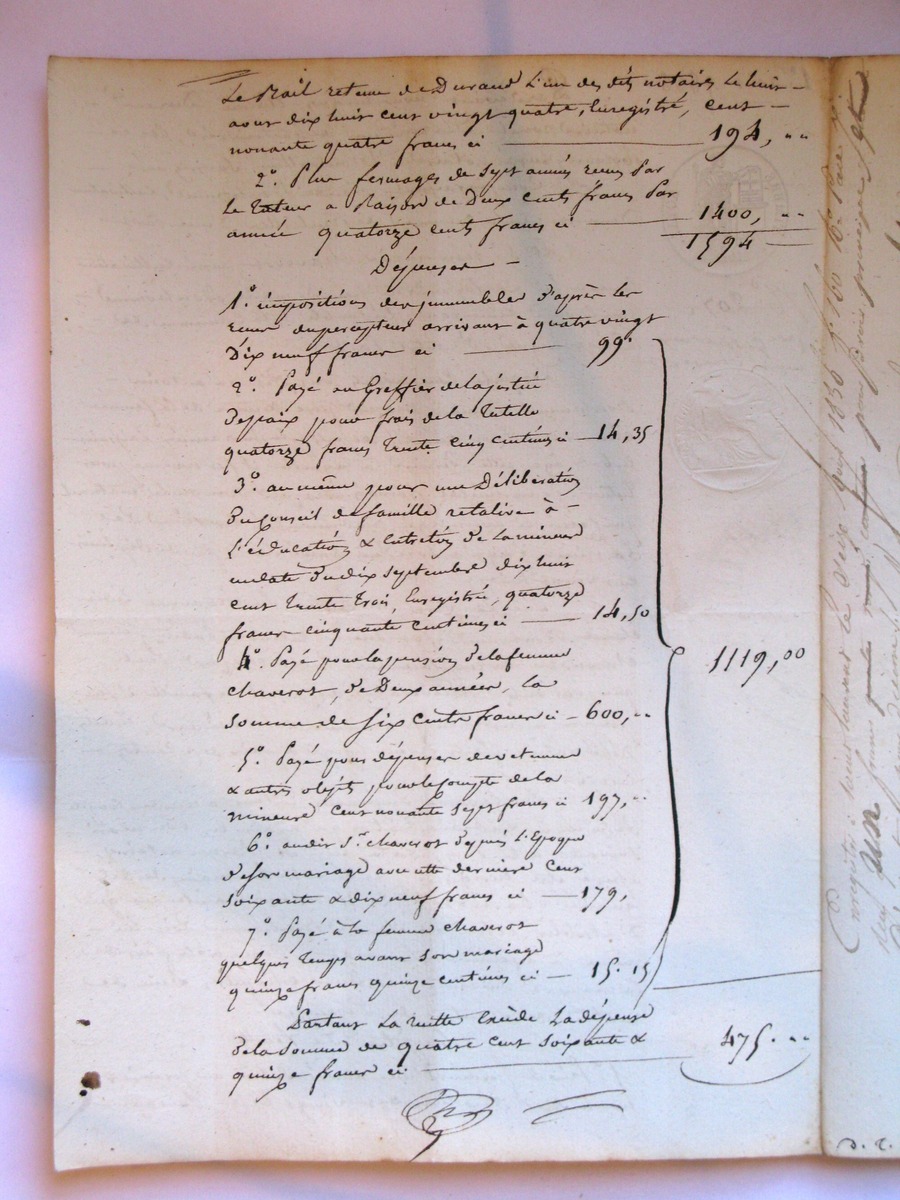 Le Bail retenu de Durand l'un des dits notaires le huit
aout dix huit cent vingt quatre, Enregistré, cent
nonante quatre francs ci 194, ""
2° Plus fermages de sept années reçus par
le Tuteur a Raison de Deux cents francs par
année quatorze cents francs ci 1400, ""
1594
Dépenses
1° impositions des immeubles d'après les
reçus du percepteur arrivant à quatre vingt
Dix neuf francs ci 99"
2° Payé au Greffier de la justice
de paix pour frais de la Tutelle
quatorze francs Trente cinq centimes ci 14,35
3° au même pour une Délibération
Du conseil de famille relative à
l'éducation & entretien de la mineure
en date du dix septembre dix huit
cent trente trois, Enregistrée, quatorze
francs cinquante centimes ci 14,50
4° Payé pour la pension de la femme
chaverot, de Deux années, la
somme de six cents francs ci 600, ""
5° Payé pour dépenses de vetements
& autres objets pour le compte de la
mineure cent nonante sept francs ci 197, ""
6° au dit Sr. chaverot depuis l'Epoque
de son mariage avec cette dernière cent
soixante & dix neuf francs ci 179,
7° Payé à la femme chaverot
quelques temps avant son mariage
quinze francs quinze centimes ci 15.15
1119,00
Partant la recette Excède la dépense
de la somme de quatre cent soixante &
quinze francs ci 475. ""